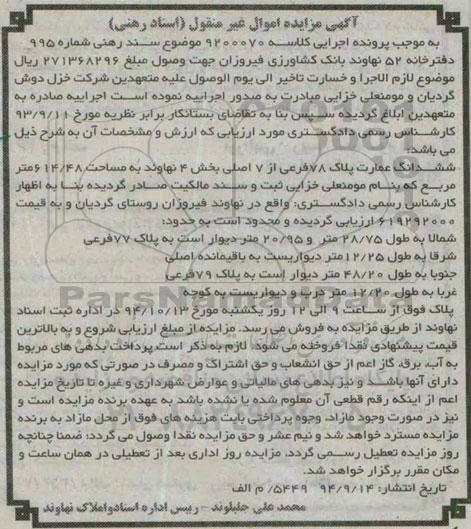 آگهی مزایده اموال غیر منقول (اسناد رهنی)
به موجب پرونده اجرایی کلاسه ۹۲۰۰۰۷۰ موضوع سند رهنی شماره ۹۹۵
دفترخانه ۵۲ نهاوند بانک کشاورزی فیروزان جهت وصول مبلغ ۲۷۱۳۶۸۲۹۶ ریال
موضوع لازم الاجرا و خسارت تاخیر الی یوم الوصول علیه متعهدین شرکت خزل دوش
گردیان و مومنعلی خزایی مبادرت به صدور اجراییه نموده است اجراییه صادره به
متعهدین ابلاغ گردیده سپس بنا به تقاضای بستانکار برابر نظریه مورخ ۹۳/۹/۱۱
کارشناس رسمی دادگستری مورد ارزیابی که ارزش و مشخصات آن به شرح ذیل
می باشد:
ششدانگ عمارت پلاک ۷۸فرعی از ۷ اصلی بخش ۴ نهاوند به مساحت ۶۱۴/۴۸متر
مربع که بنام مومنعلی خزایی ثبت و سند مالکیت صادر گردیده بنا به اظهار
کارشناس رسمی دادگستری: واقع در نهاوند فیروزان روستای گردیان و به قیمت
۶۱۹۲۹۲۰۰۰ ارزیابی گردیده و محدود است به حدود:
شمالا به طول ۲۸/۷۵ متر و ۲۰/۹۵ متر دیوار است به پلاک ۷۷فرعی
شرقا به طول ۱۲/۲۵متر دیواریست به باقیمانده اصلی
جنوبا به طول ۴۸/۲۰ متر دیوار است به پلاک ۷۹فرعی
غربا به طول ۱۲/۲۰ متر درب و دیواریست به کوچه
پلاک فوق از ساعت ۹ الی ۱۲ روز یکشنبه مورخ ۹۴/۱۰/۱۳ در اداره ثبت اسناد
نهاوند از طریق مزایده به فروش می رسد. مزایده از مبلغ ارزیابی شروع و به بالاترین
قیمت پیشنهادی نقدا فروخته می شود. لازم به ذکر است پرداخت بدهی های مربوط
به آب، برق، گاز اعم از حق انشعاب و حق اشتراک و مصرف در صورتی که مورد مزایده
دارای آنها باشد و نیز بدهی های مالیاتی و عوارض شهرداری و غیره تا تاریخ مزایده
اعم از اینکه رقم قطعی آن معلوم شده یا نشده باشد به عهده برنده مزایده است و
نیز در صورت وجود مازاد، وجوه پرداختی بابت هزینه های فوق از محل مازاد به برنده
مزایده مسترد خواهد شد و نیم عشر و حق مزایده نقدا وصول می گردد؛ ضمنا چنانچه
روز مزایده تعطیل رسمی گردد، مزایده روز اداری بعد از تعطیلی در همان ساعت و
مکان مقرر برگزار خواهد شد.
تاریخ انتشار: ۹۴/۹/۱۴ ۵۴۴۹/ م الف
محمد علی جلیلوند - رییس اداره اسناد و املاک نهاوند
ParsNamadData